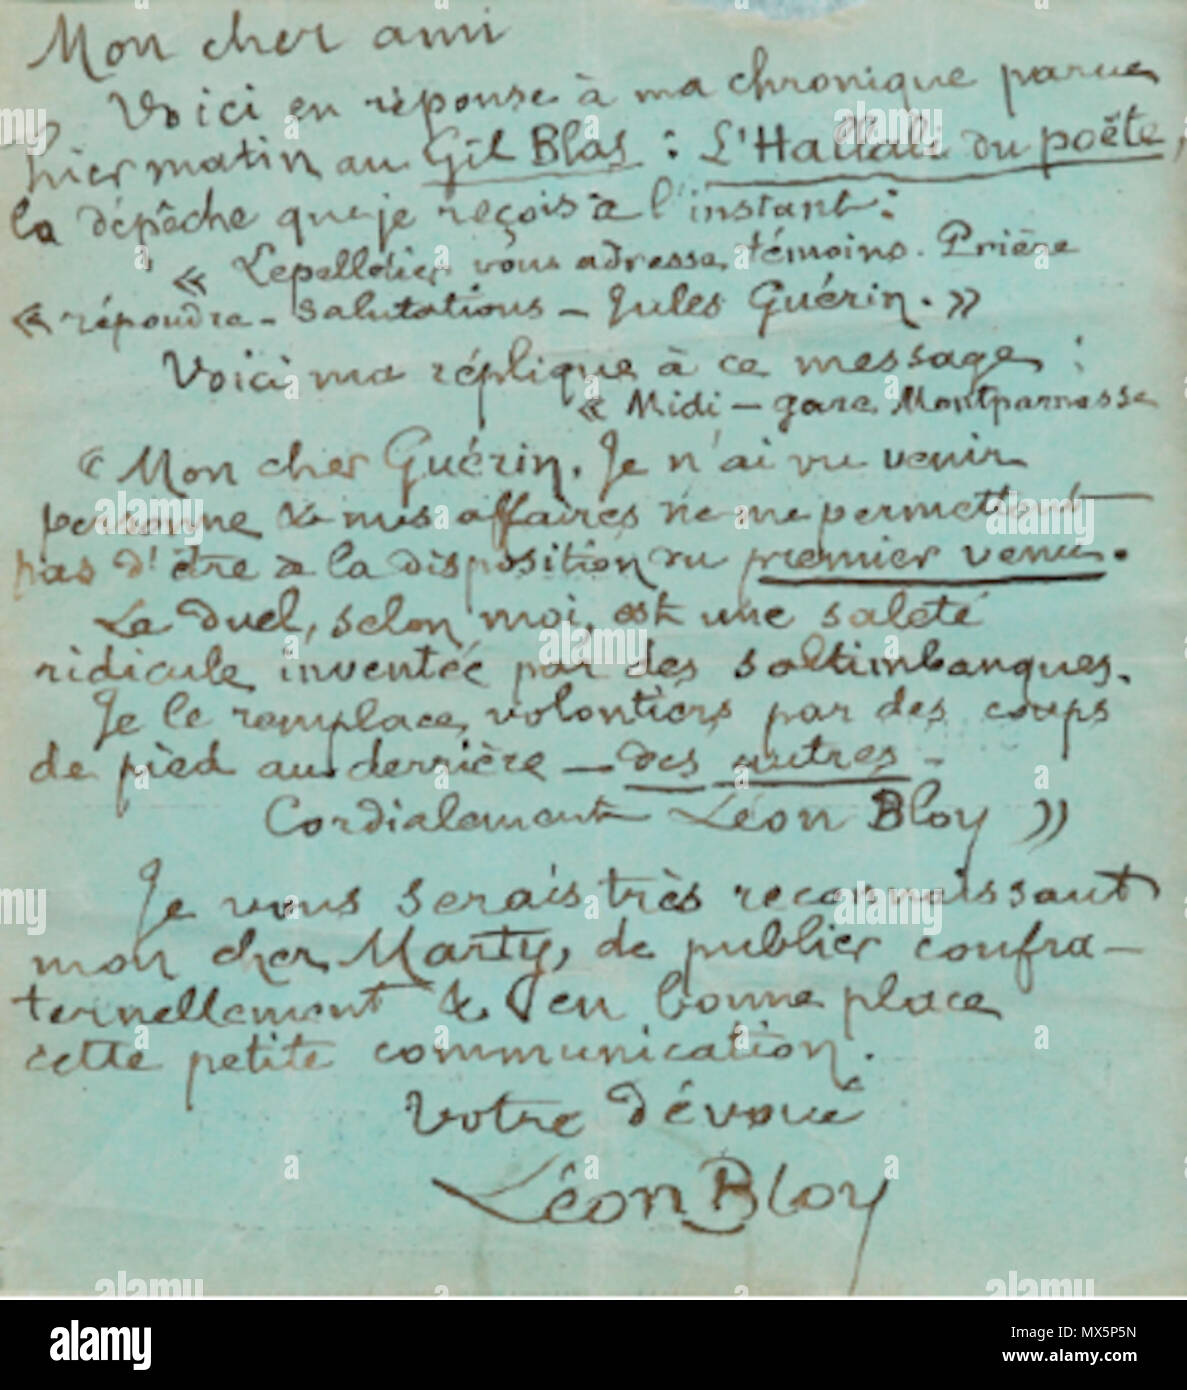 Mon cher ami
Voici en réponse à ma chronique parue
hier matin au Gil Blas : L'Hallali du poëte,
la dépêche que je reçois à l'instant :
« Lepelletier vous adresse témoins. Prière
« répondre – Salutations – Jules Guérin. »
Voici ma réplique à ce message :
« Midi – gare Montparnasse
« Mon cher Guérin. Je n'ai vu venir
personne & mes affaires ne me permettent
pas d'être à la disposition du premier venu.
Le duel, selon moi, est une saleté
ridicule inventée par des saltimbanques.
Je le remplace volontiers par des coups
de pied au derrière – des autres –
Cordialement Léon Bloy »
Je vous serais très reconnaissant
mon cher Marty, de publier confra-
ternellement & en bonne place
cette petite communication.
Votre dévoué
Léon Bloy
alamy
Image ID: MX5P5N
www.alamy.com